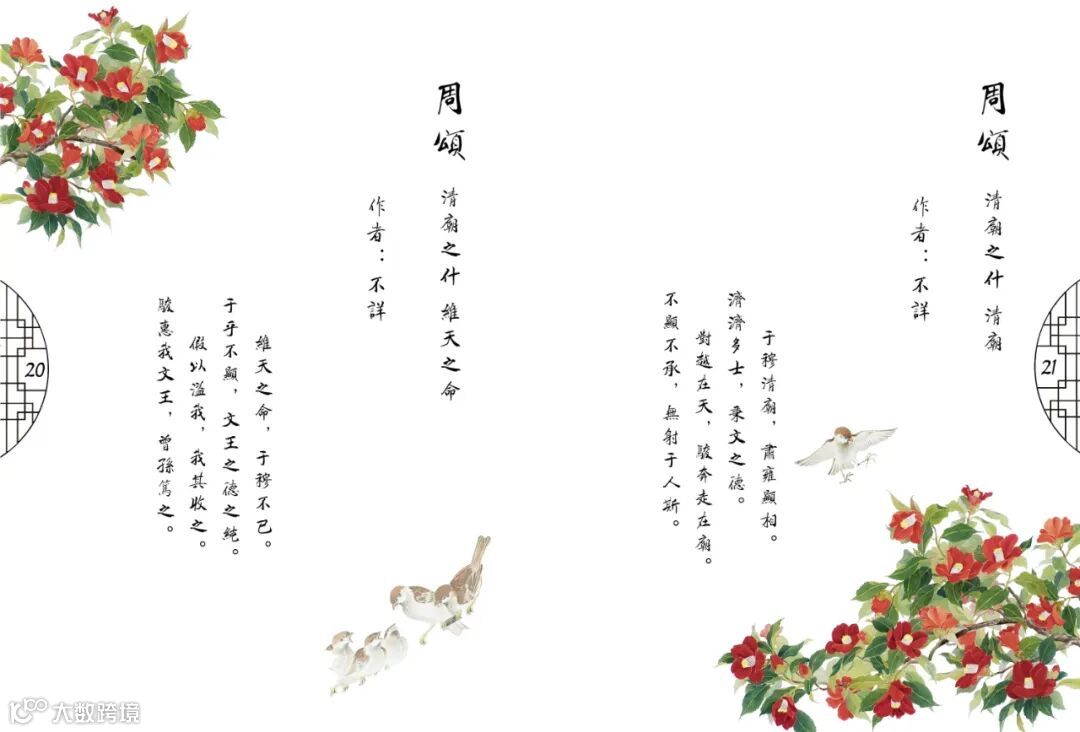 周頌 清廟之什 清廟
作者：不詳
于穆清廟，肅雍顯相。
濟濟多士，秉文之德。
對越在天，駿奔走在廟。
不顯不承，無射于人斯。
21
周頌 清廟之什 維天之命
作者：不詳
維天之命，于穆不已。
于乎不顯，文王之德之純。
假以溢我，我其收之。
駿惠我文王，曾孫篤之。
20
大数跨境